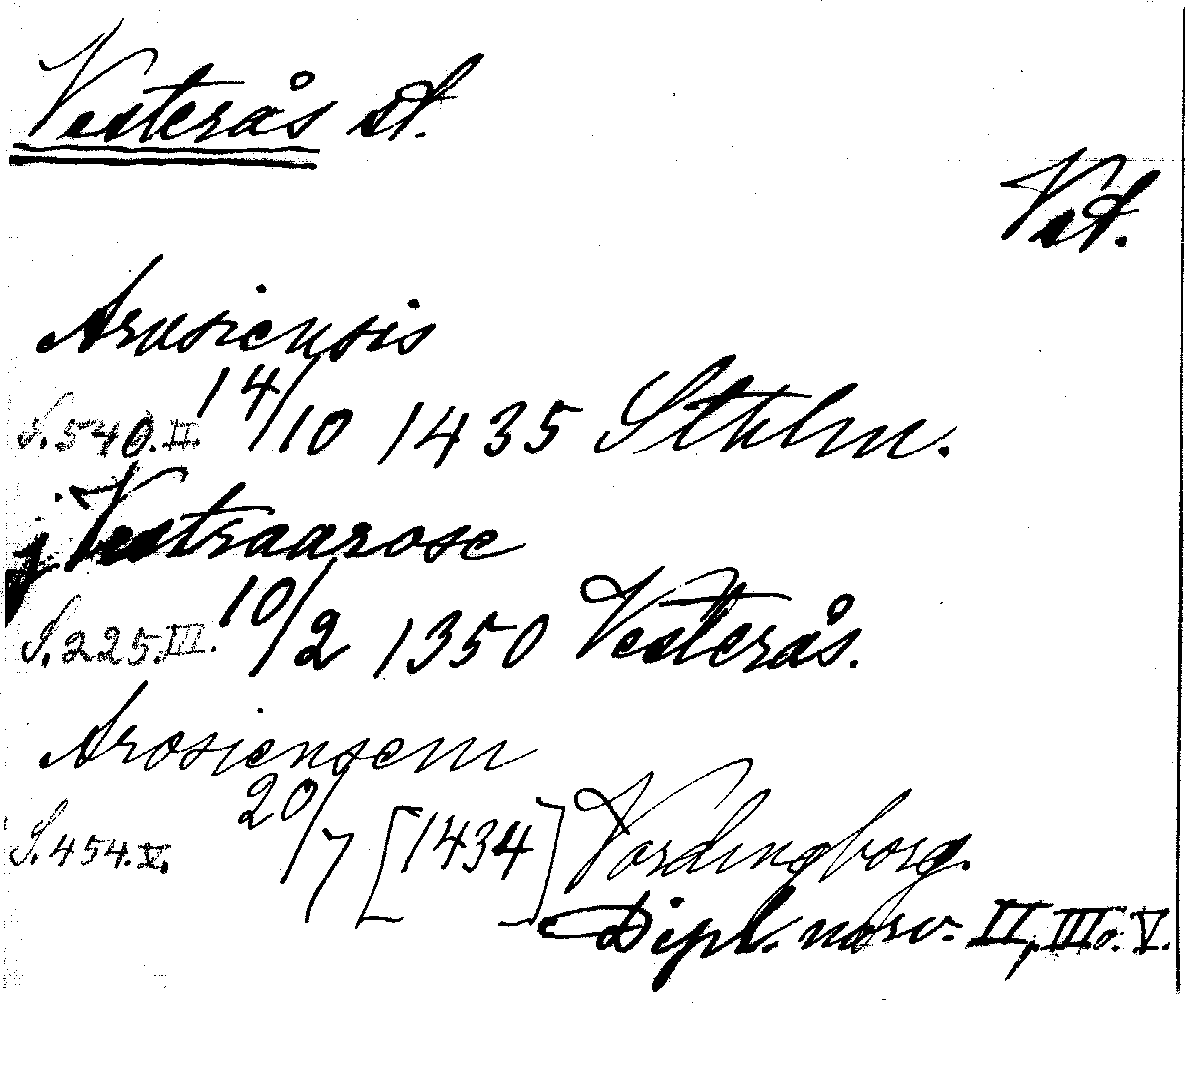 Vesterås st.
Vst.
Arusiensis
S. 540. II. 14/10 1435 Sthlm.
j Vestraarose
S. 225. III. 10/2 1350 Vesterås.
Arosiensem
S. 454. V. 20/7 [1434] Vordingborg.
Dipl. norv. II, III o. V.